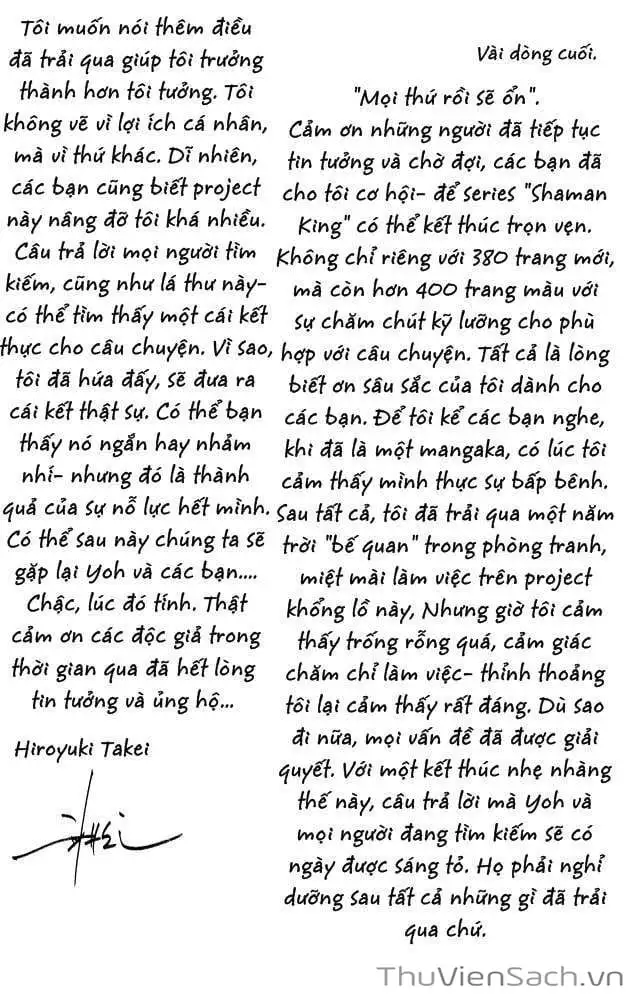 Vài dòng cuối.
"Mọi thứ rồi sẽ ổn".
Cảm ơn những người đã tiếp tục
tin tưởng và chờ đợi, các bạn đã
cho tôi cơ hội- để series "Shaman
King" có thể kết thúc trọn vẹn.
Không chỉ riêng với 380 trang mới,
mà còn hơn 400 trang màu với
sự chăm chút kỹ lưỡng cho phù
hợp với câu chuyện. Tất cả là lòng
biết ơn sâu sắc của tôi dành cho
các bạn. Để tôi kể các bạn nghe,
khi đã là một mangaka, có lúc tôi
cảm thấy mình thực sự bấp bênh.
Sau tất cả, tôi đã trải qua một năm
trời "bế quan" trong phòng tranh,
miệt mài làm việc trên project
khổng lồ này, Nhưng giờ tôi cảm
thấy trống rỗng quá, cảm giác
chăm chỉ làm việc- thỉnh thoảng
tôi lại cảm thấy rất đáng. Dù sao
đi nữa, mọi vấn đề đã được giải
quyết. Với một kết thúc nhẹ nhàng
thế này, câu trả lời mà Yoh và
mọi người đang tìm kiếm sẽ có
ngày được sáng tỏ. Họ phải nghỉ
dưỡng sau tất cả những gì đã trải
qua chứ.
Tôi muốn nói thêm điều
đã trải qua giúp tôi trưởng
thành hơn tôi tưởng. Tôi
không vẽ vì lợi ích cá nhân,
mà vì thứ khác. Dĩ nhiên,
các bạn cũng biết project
này nâng đỡ tôi khá nhiều.
Câu trả lời mọi người tìm
kiếm, cũng như lá thư này-
có thể tìm thấy một cái kết
thực cho câu chuyện. Vì sao,
tôi đã hứa đấy, sẽ đưa ra
cái kết thật sự. Có thể bạn
thấy nó ngắn hay nhảm
nhí- nhưng đó là thành
quả của sự nỗ lực hết mình.
Có thể sau này chúng ta sẽ
gặp lại Yoh và các bạn....
Chậc, lúc đó tính. Thật
cảm ơn các độc giả trong
thời gian qua đã hết lòng
tin tưởng và ủng hộ...
Hiroyuki Takei
ThuVienSach.vn